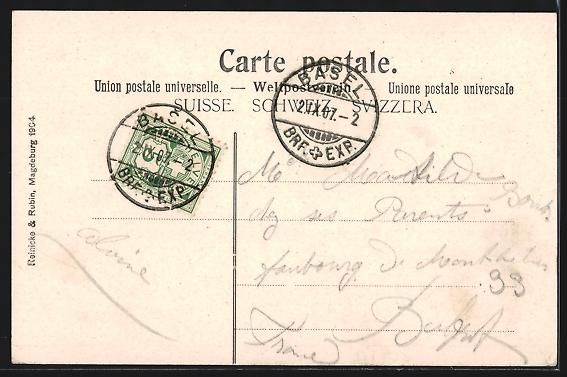 Carte postale.
Union postale universelle. — Weltpostverein. Unione postale universale
SUISSE. SCHWEIZ. SVIZZERA.
BASEL
2.IX.07.-2
BRF. EXP.
BASEL
2.IX.07.-2
BRF. EXP.
5
Reinicke & Rubin, Magdeburg 1904.
Mlle Mathilde
chez ses Parents
faubourg de Montbéliard
33
Belfort
France